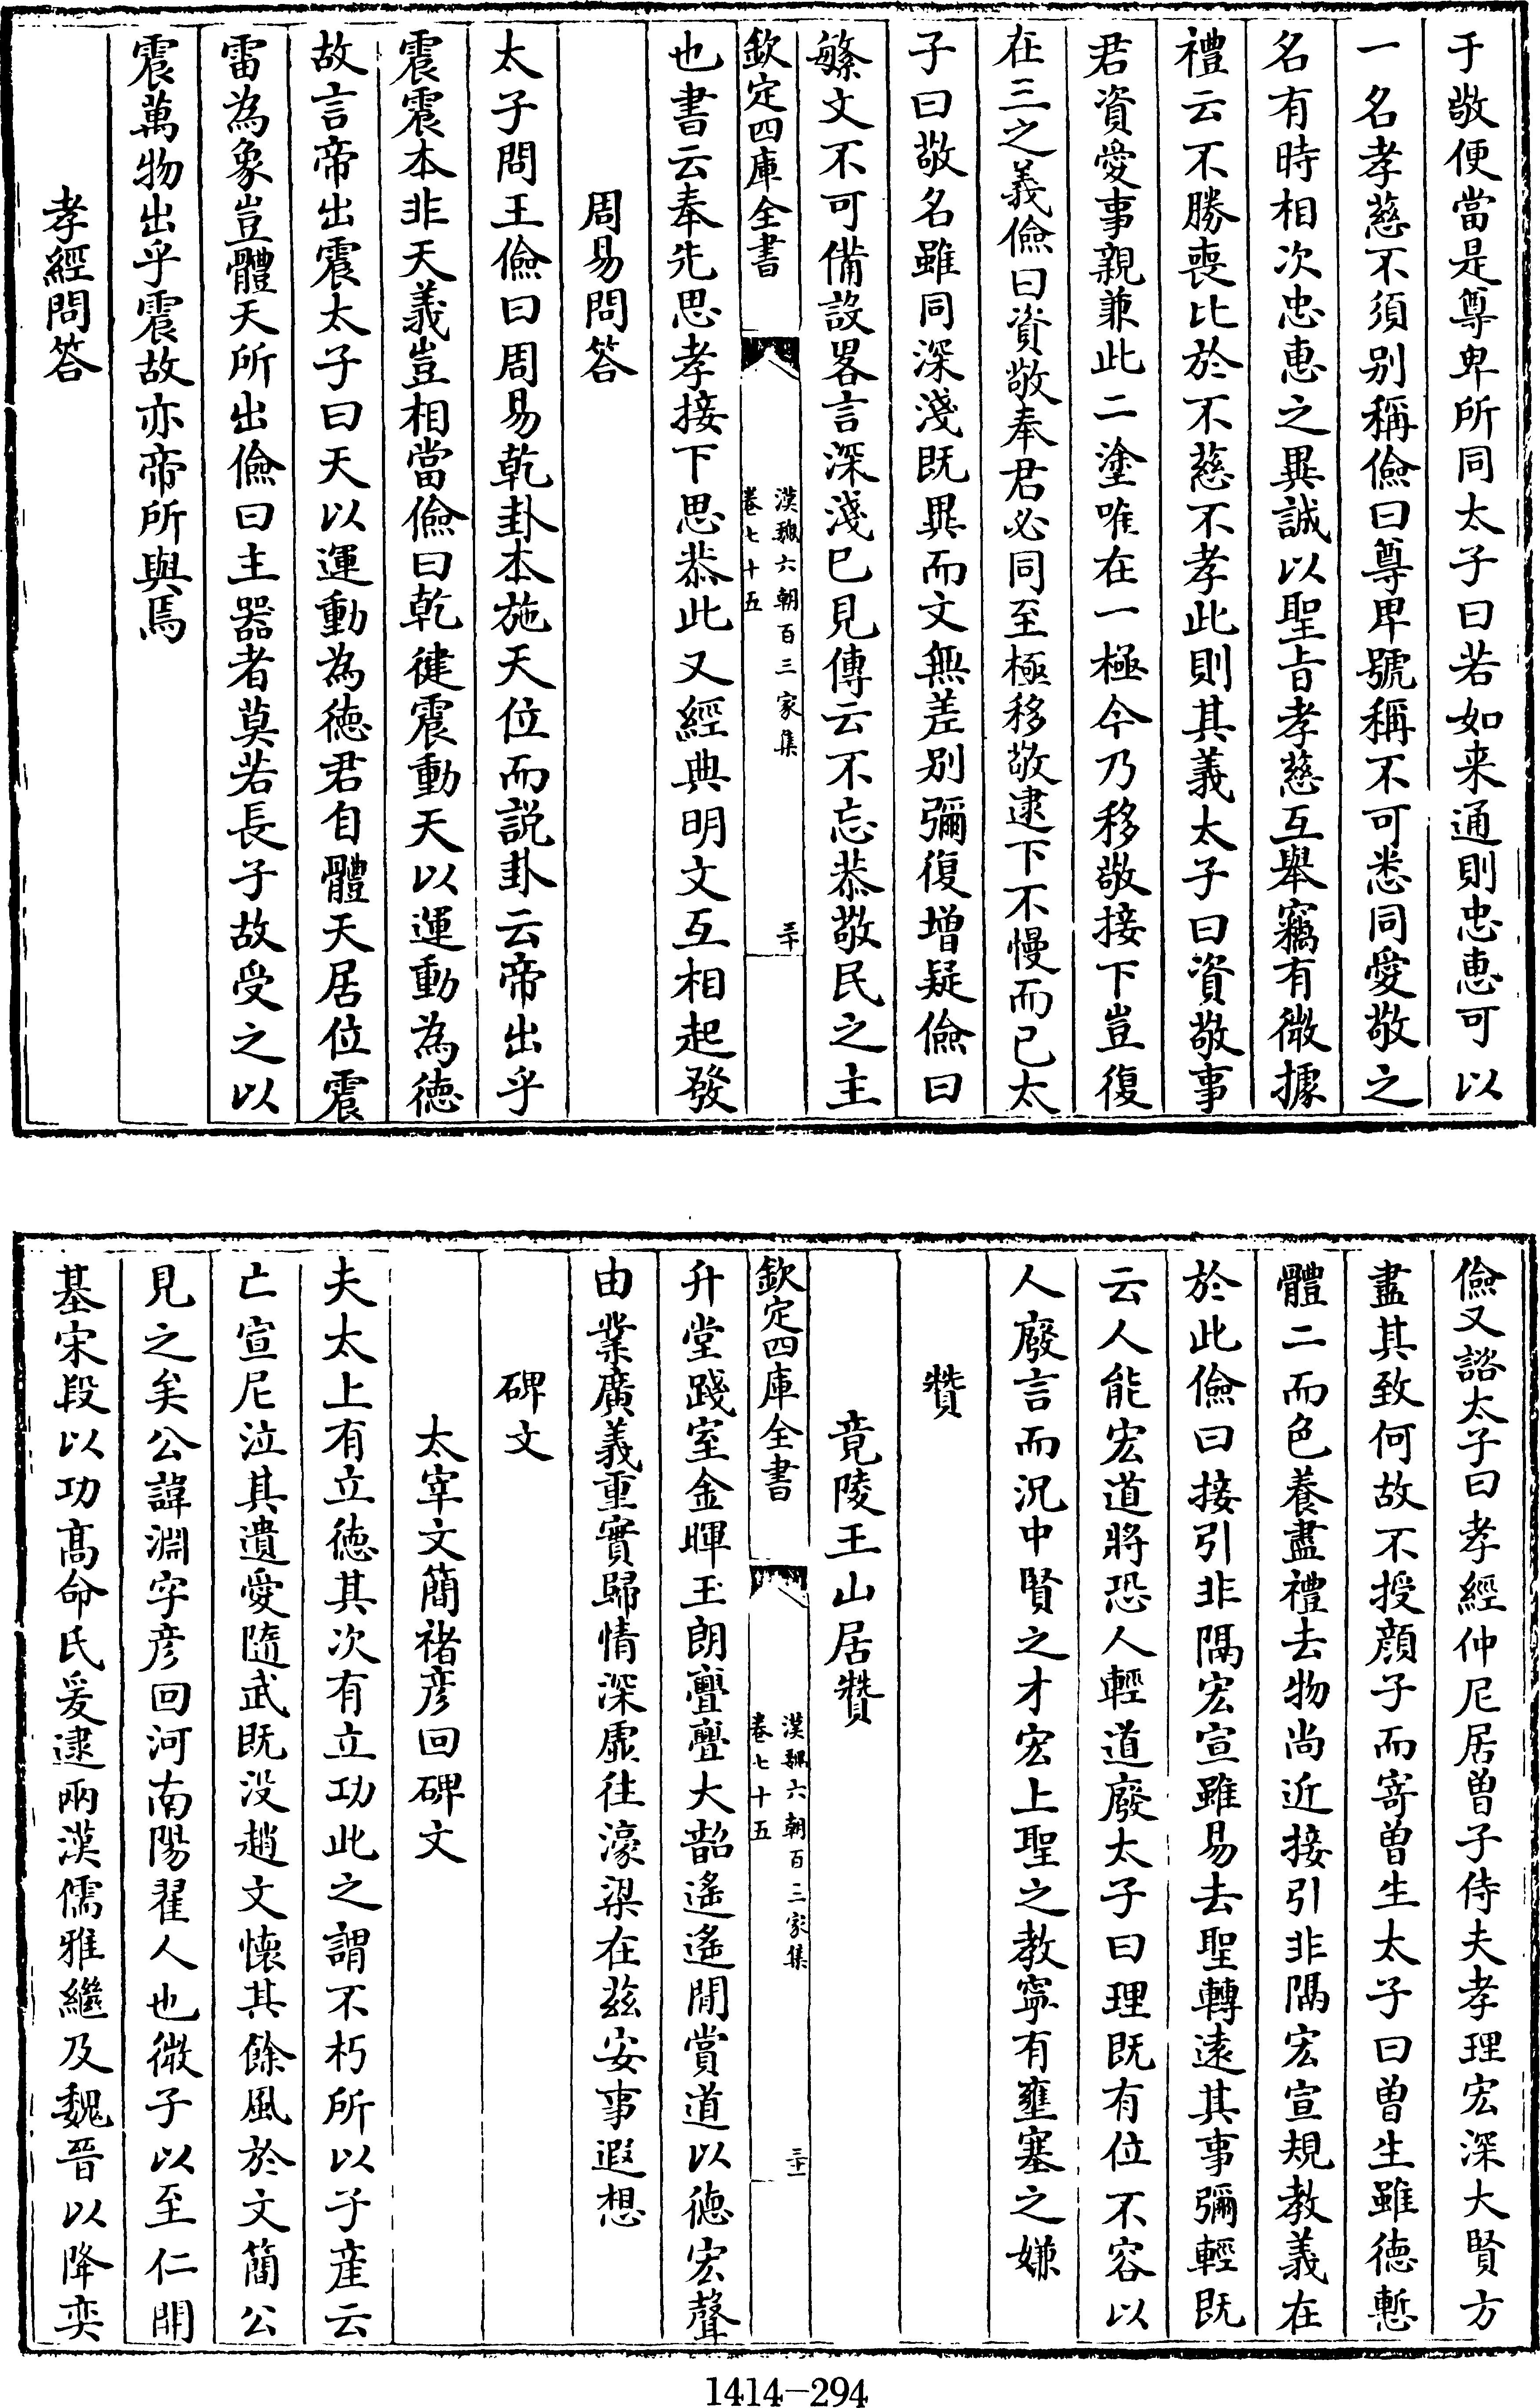 于敬便當是尊卑所同太子曰若如来通則忠恵可以
一名孝慈不須别稱儉曰尊卑號稱不可悉同愛敬之
名有時相次忠惠之異誠以聖旨孝慈互舉竊有微據
禮云不勝喪比於不慈不孝此則其義太子曰資敬事
君資愛事親兼此二塗唯在一極今乃移敬接下豈復
在三之義儉曰資敬奉君必同至極移敬逮下不慢而已太
子曰敬名雖同深淺既異而文無差别彌復增疑儉曰
繁文不可備設畧言深淺已見傳云不忘恭敬民之主
欽定四庫全書
漢魏六朝百三家集
卷七十五
三十
也書云奉先思孝接下思恭此又經典明文互相起發
周易問答
太子問王儉曰周易乾卦本施天位而説卦云帝出乎
震震本非天義豈相當儉曰乾健震動天以運動為徳
故言帝出震太子曰天以運動為徳君自體天居位震
雷為象豈體天所出儉曰主器者莫若長子故受之以
震萬物出乎震故亦帝所與焉
孝經問答
儉又諮太子曰孝經仲尼居曽子侍夫孝理宏深大賢方
盡其致何故不授顔子而寄曽生太子曰曽生雖徳慙
體二而色養盡禮去物尚近接引非隔宏宣規教義在
於此儉曰接引非隔宏宣雖易去聖轉逺其事彌輕既
云人能宏道將恐人輕道廢太子曰理既有位不容以
人廢言而況中賢之才宏上聖之教寧有壅塞之嫌
贊
竟陵王山居贊
欽定四庫全書
漢魏六朝百三家集
卷七十五
三十一
升堂踐室金暉玉朗亹亹大韶遙遙閒賞道以徳宏聲
由業廣義重實歸情深虛往濠梁在兹安事遐想
碑文
太宰文簡褚彦回碑文
夫太上有立徳其次有立功此之謂不朽所以子産云
亡宣尼泣其遺愛隨武既没趙文懐其餘風於文簡公
見之矣公諱淵字彦回河南陽翟人也微子以至仁開
基宋段以功髙命氏爰逮兩漢儒雅繼及魏晉以降奕
1414-294